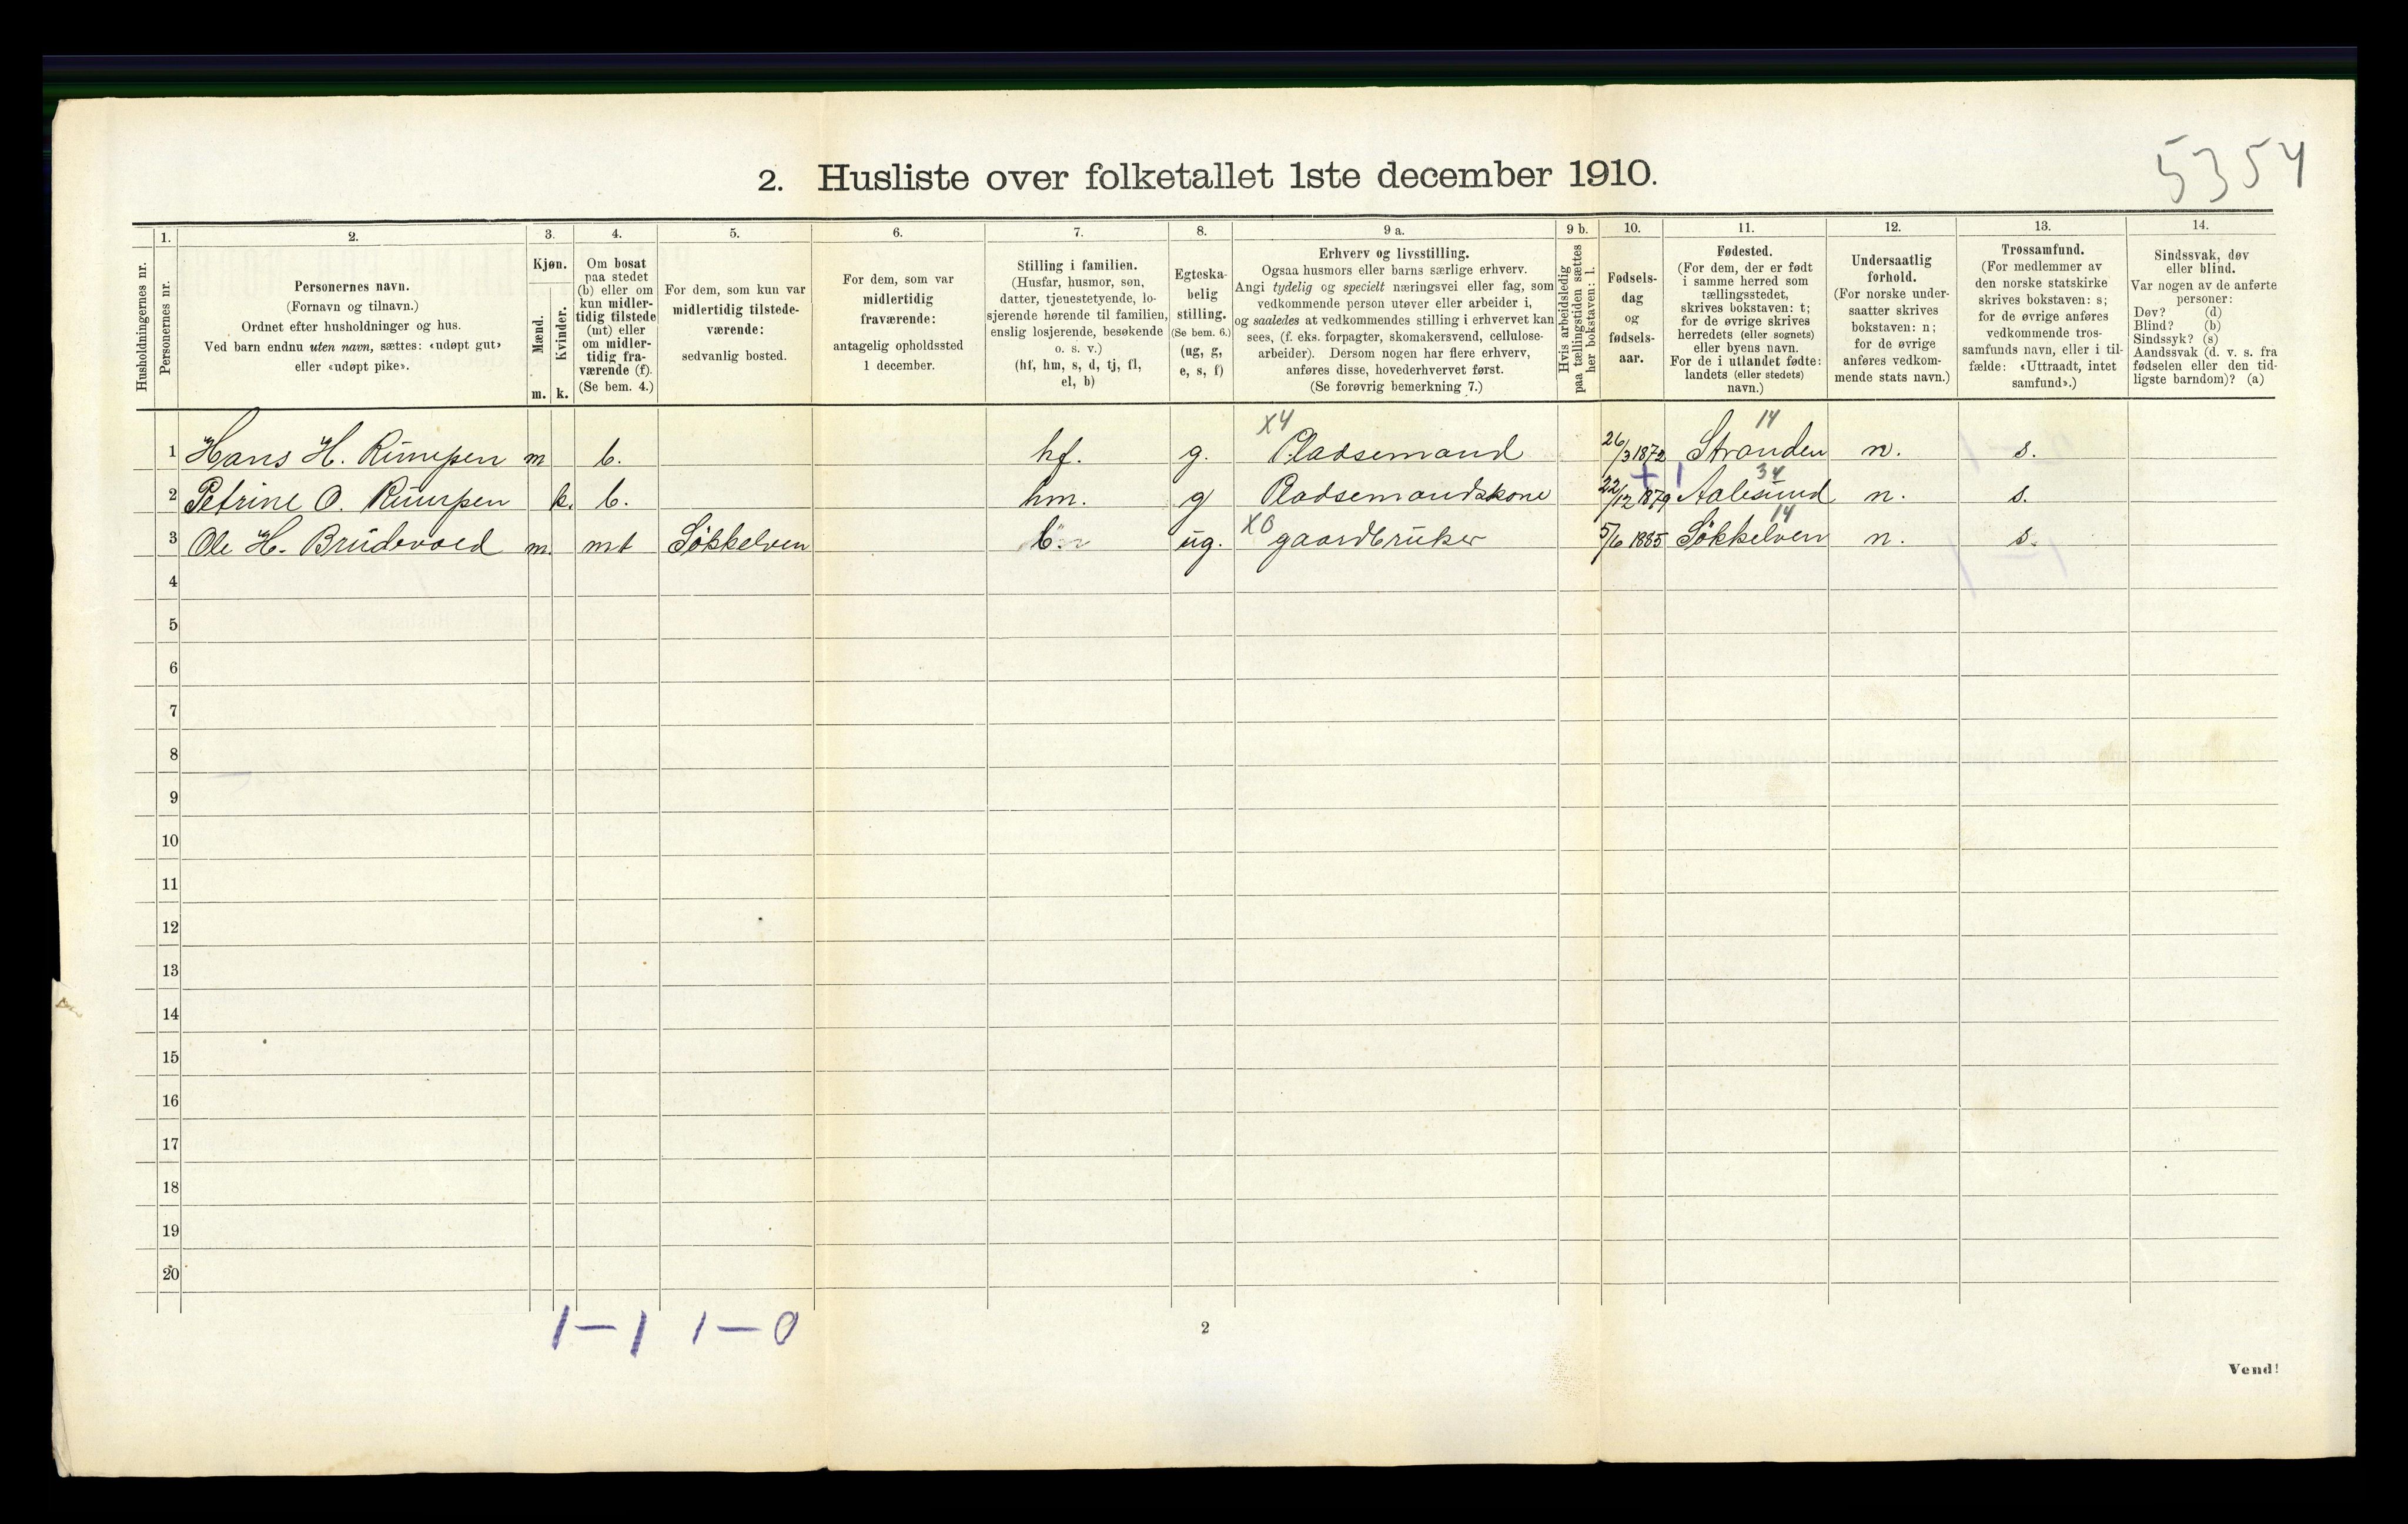 5354
2. Husliste over folketallet 1ste december 1910.
Husholdningernes nr.
1.
Personernes nr.
2.
Personernes navn.
(Fornavn og tilnavn.)
Ordnet efter husholdninger og hus.
Ved barn endnu uten navn, sættes: «udøpt gut»
eller «udøpt pike».
3.
Kjøn.
Mænd.
Kvinder.
m. k.
4.
Om bosat
paa stedet
(b) eller om
kun midler-
tidig tilstede
(mt) eller
om midler-
tidig fra-
værende (f).
(Se bem. 4.)
5.
For dem, som kun var
midlertidig tilstede-
værende:
sedvanlig bosted.
6.
For dem, som var
midlertidig
fraværende:
antagelig opholdssted
1 december.
7.
Stilling i familien.
(Husfar, husmor, søn,
datter, tjenestetyende, lo-
sjerende hørende til familien,
enslig losjerende, besøkende
o. s. v.)
(hf, hm, s, d, tj, fl,
el, b)
8.
Egteska-
belig
stilling.
(Se bem. 6.)
(ug, g,
e, s, f)
9 a.
Erhverv og livsstilling.
Ogsaa husmors eller barns særlige erhverv.
Angi tydelig og specielt næringsvei eller fag, som
vedkommende person utøver eller arbeider i,
og saaledes at vedkommendes stilling i erhvervet kan
sees, (f. eks. forpagter, skomakersvend, cellulose-
arbeider). Dersom nogen har flere erhverv,
anføres disse, hovederhvervet først.
(Se forøvrig bemerkning 7.)
9 b.
Hvis arbeidsledig
paa tællingstiden sættes
her bokstaven: l.
10.
Fødsels-
dag
og
fødsels-
aar.
11.
Fødested.
(For dem, der er født
i samme herred som
tællingsstedet,
skrives bokstaven: t;
for de øvrige skrives
herredets (eller sognets)
eller byens navn.
For de i utlandet fødte:
landets (eller stedets)
navn.)
12.
Undersaatlig
forhold.
(For norske under-
saatter skrives
bokstaven: n;
for de øvrige
anføres vedkom-
mende stats navn.)
13.
Trossamfund.
(For medlemmer av
den norske statskirke
skrives bokstaven: s;
for de øvrige anføres
vedkommende tros-
samfunds navn, eller i til-
fælde: «Uttraadt, intet
samfund».)
14.
Sindssvak, døv
eller blind.
Var nogen av de anførte
personer:
Døv? (d)
Blind? (b)
Sindssyk? (s)
Aandssvak (d. v. s. fra
fødselen eller den tid-
ligste barndom)? (a)
X4 14
1 Hans H. m b. hf. g. Pladsemand 26/3 1872 Stranden n. s.
+ 1 34
2 Petrine O. k. b. hm. g Pladsemandskone 22/12 1879 Aalesund n. s.
X0 14
3 Ole H. Brudevold m. mt Søkkelven b. ug. gaardbruker 5/6 1885 Søkkelven n. s.
4
5
6
7
8
9
10
11
12
13
14
15
16
17
18
19
20
1–1 1–0
2
Vend!